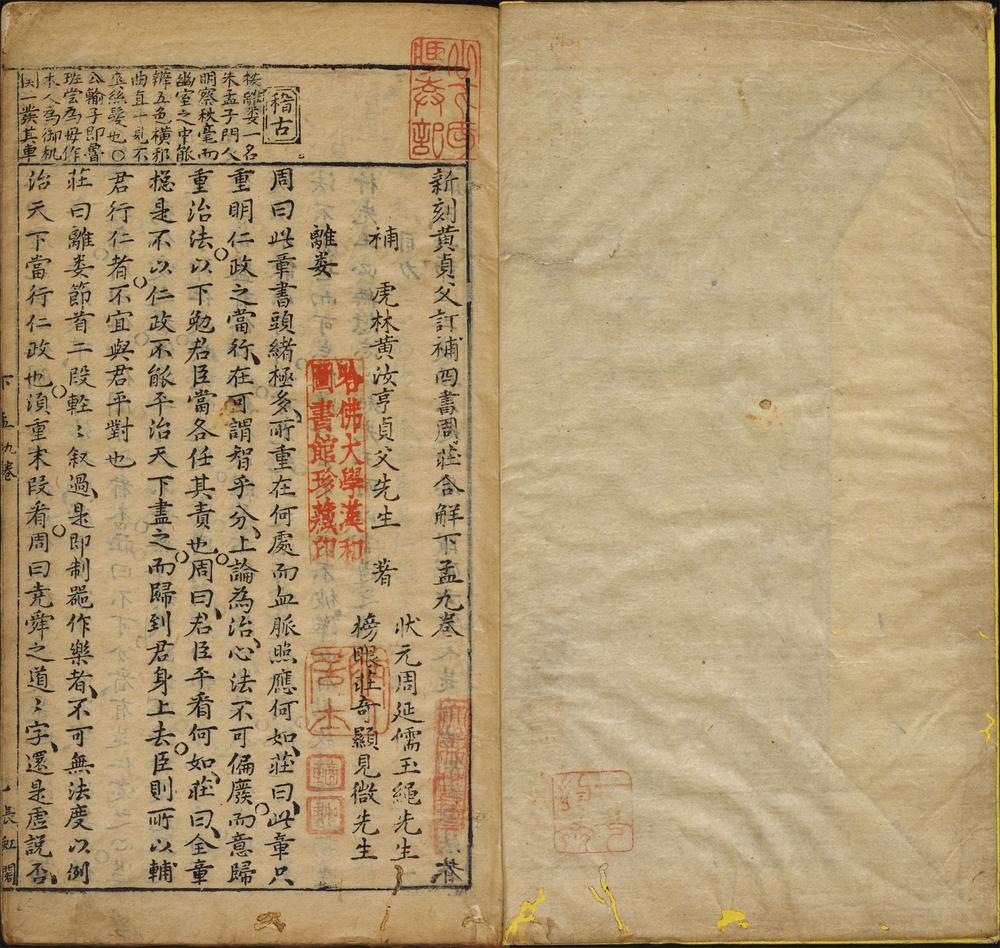 新刻黄貞父訂補四書周莊合解下孟九卷
補
虎林黄汝亨貞父先生 著
狀元周延儒玉繩先生
榜眼莊奇顯見微先生
離婁
周曰此章書頭緒極多所重在何處而血脈照應何如莊曰此章只
重明仁政之當行在可謂智乎分上論為治心法不可偏廢而意歸
重治法以下勉君臣當各任其責也周曰君臣平看何如莊曰全章
總是不以仁政不能平治天下盡之而歸到君身上去臣則所以輔
君行仁者不宜與君平對也
莊曰離婁節首二段輕〻叙過是即制器作樂者不可無法度以例
治天下當行仁政也須重末段看周曰堯舜之道〻字還是虛説否
稽古
按離婁一名
朱孟子門人
明察秋毫而
幽室之中能
辨五色橫邪
曲直
絲髮也〇
公輸子即魯
班嘗為母作
木人為御机
一發其車
哈佛大學漢和
圖書館珍藏印
下孟九卷
長虹閣